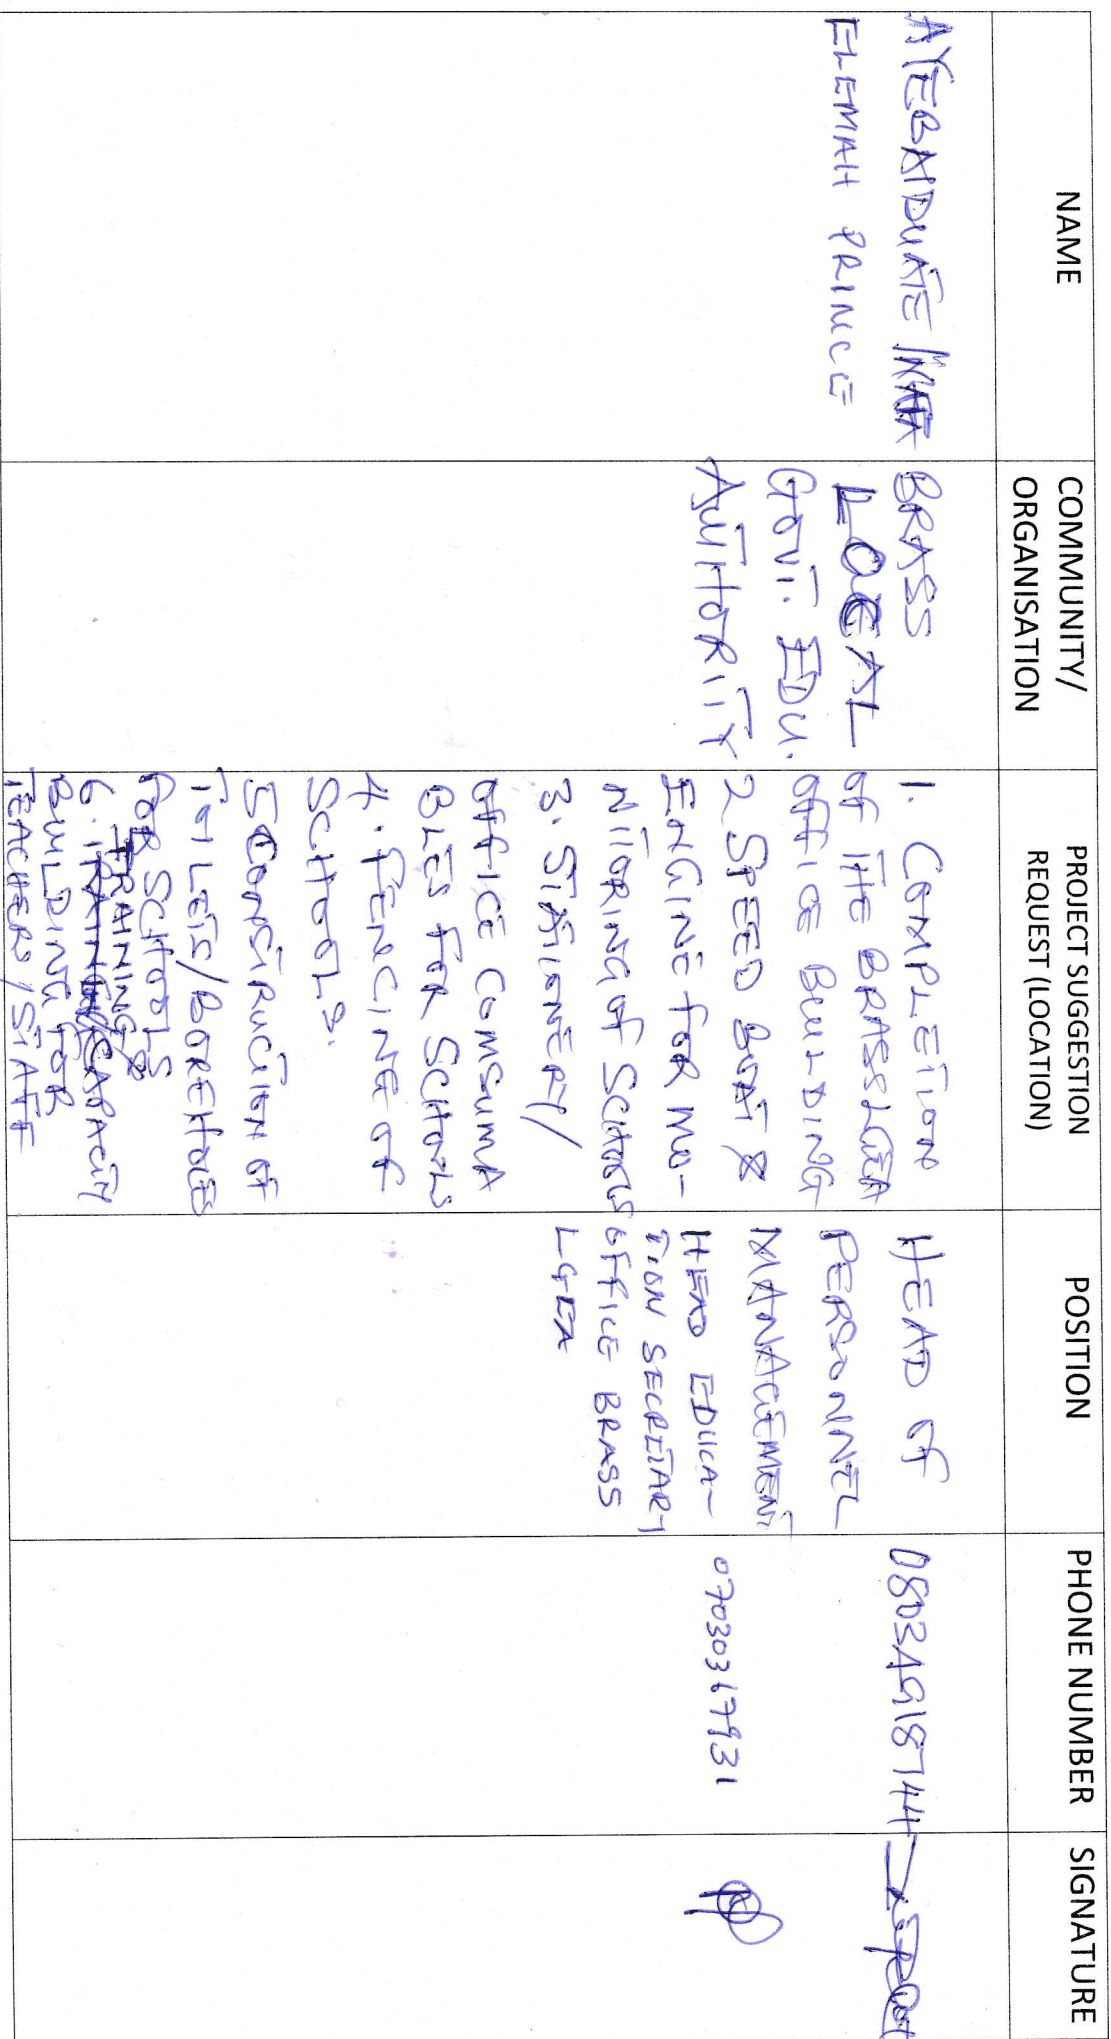 NAME
COMMUNITY/
ORGANISATION
PROJECT SUGGESTION
REQUEST (LOCATION)
POSITION
PHONE NUMBER
SIGNATURE
AYEBAIDUATE
ELEMAH PRINCE
BRASS
LOCAL
GOVT. EDU.
AUTHORITY
1. COMPLETION
OF THE BRASS LGEA
OFFICE BUILDING
2 SPEED BOAT &
ENGINE FOR MO-
NITORING OF SCHOOLS
3. STATIONERY/
OFFICE COMSUMA
BLES FOR SCHOOLS
4. FENCING OF
SCHOOLS.
5 CONSTRUCTION OF
TOILETS/BOREHOLES
FOR SCHOOLS
6. TRAINING & CAPACITY
BUILDING FOR
TEACHERS/STAFF
HEAD OF
PERSONNEL
MANAGEMENT
HEAD EDUCA-
TION SECRETARY
OFFICE BRASS
LGEA
08034918744
07030367931